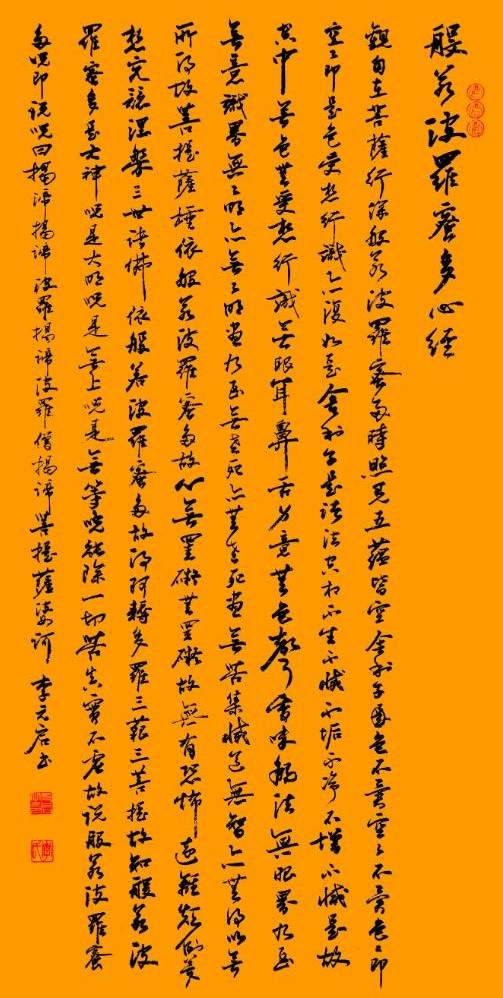 般若波羅蜜多心經
觀自在菩薩行深般若波羅蜜多時照見五蘊皆空舍利子色不異空々不異色々即
空々即是色受想行識亦復如是舍利子是諸法空相不生不滅不垢不淨不增不減是故
空中無色無受想行識無眼耳鼻舌身意無色聲香味觸法無眼界乃至
無意識界無々明亦無々明盡乃至無老死亦無老死盡無苦集滅道無智亦無得以無
所得故菩提薩埵依般若波羅蜜多故心無罣礙無罣礙故無有恐怖遠離顛倒夢
想究竟涅槃三世諸佛依般若波羅蜜多故得阿耨多羅三藐三菩提故知般若波
羅蜜多是大神呪是大明呪是無上呪是無等呪能除一切苦真實不虛故說般若波羅蜜
多呪即說呪曰揭諦揭諦波羅揭諦波羅僧揭諦菩提薩婆訶 李元启书